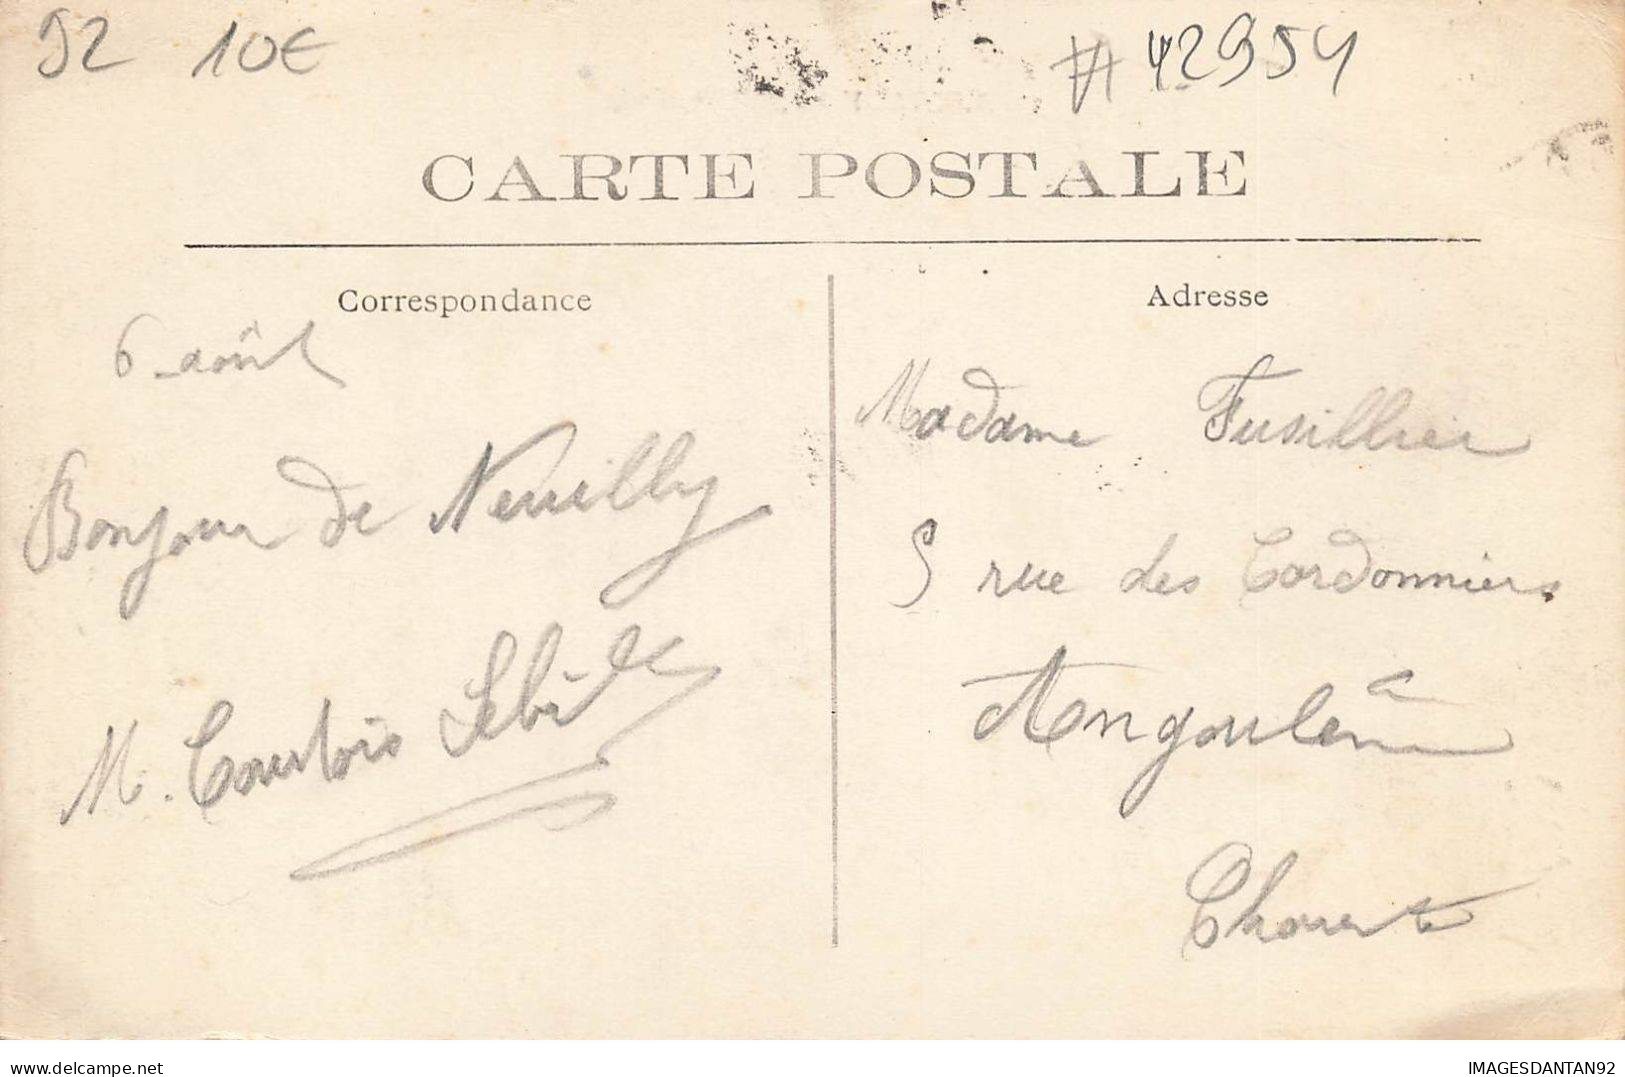 92 10€ #42954
CARTE POSTALE
Correspondance
6 août
Bonjour de Neuilly
M. Courtois
Adresse
Madame Fusillier
5 rue des Cordonniers
Angoulême
Charente
delcampe.net
IMAGESDANTAN92